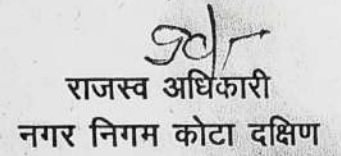 Sd/-
राजस्व अधिकारी
नगर निगम कोटा दक्षिण